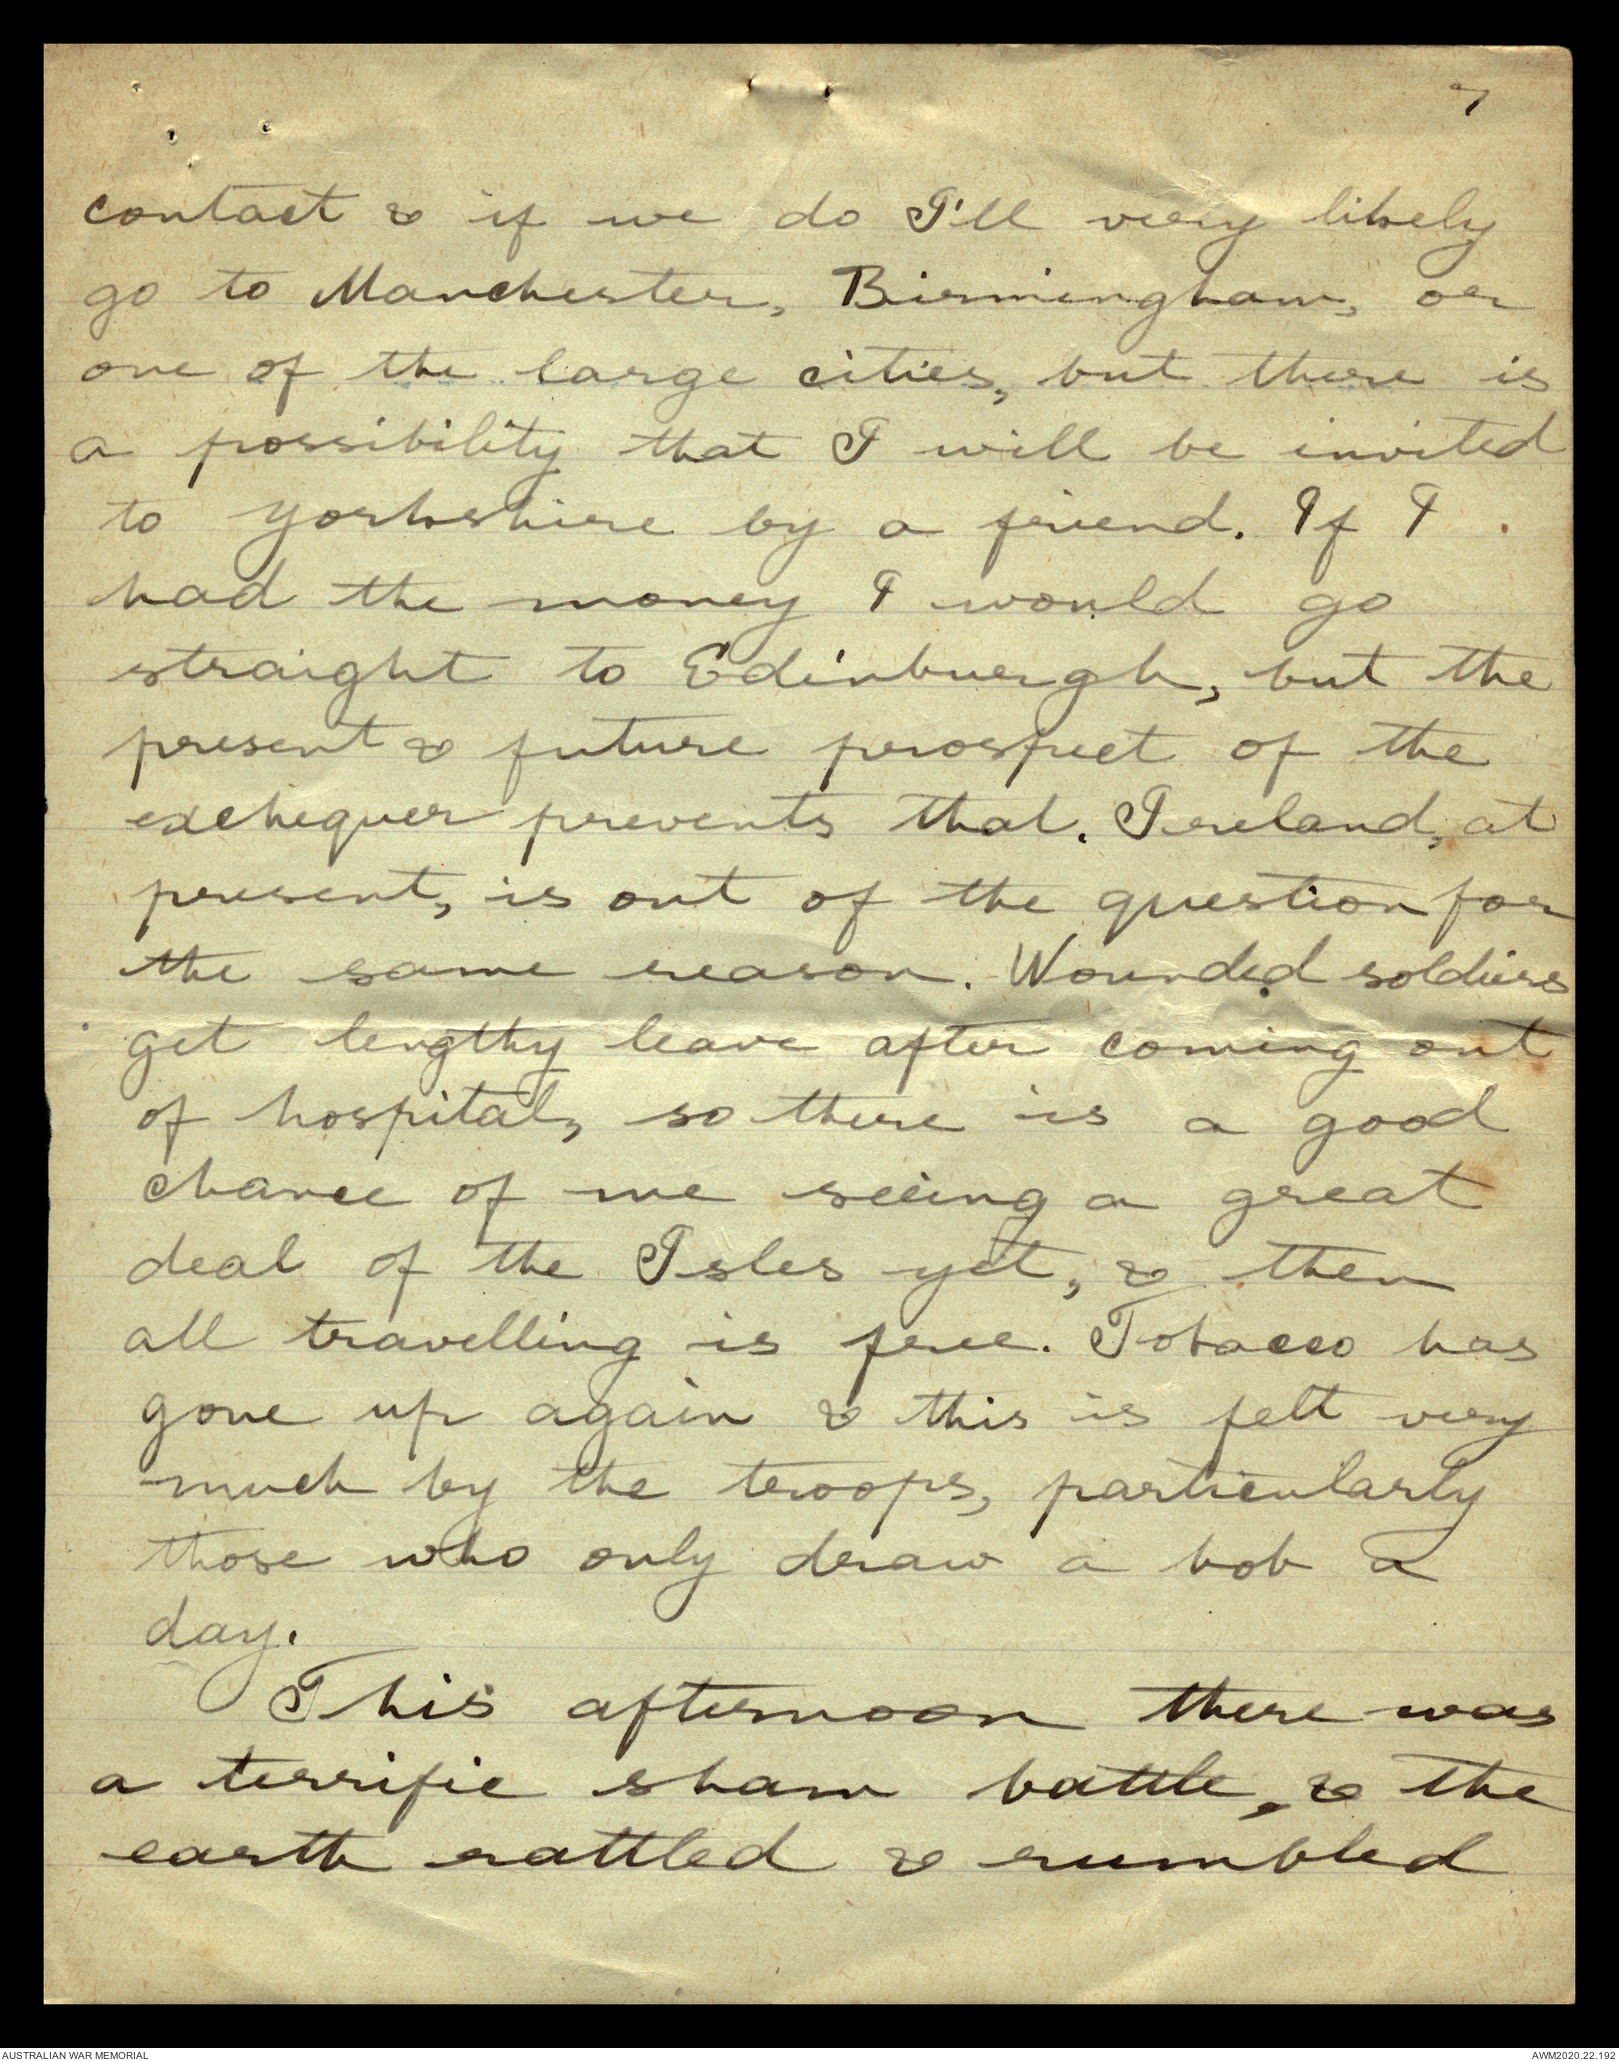 7
contact & if we do I'll very likely
go to Manchester, Birmingham, or
one of the large cities, but there is
a possibility that I will be invited
to Yorkshire by a friend. If I
had the money I would go
straight to Edinburgh, but the
present & future prospect of the
exchequer prevents that. Ireland, at
present, is out of the question for
the same reason. Wounded soldiers
get lengthy leave after coming out
of hospital, so there is a good
chance of me seeing a great
deal of the Isles yet, & then
all travelling is free. Tobacco has
gone up again & this is felt very
much by the troops, particularly
those who only draw a bob a
day.
This afternoon there was
a terrific sham battle, & the
earth rattled & rumbled
AUSTRALIAN WAR MEMORIAL
AWM2020.22.192